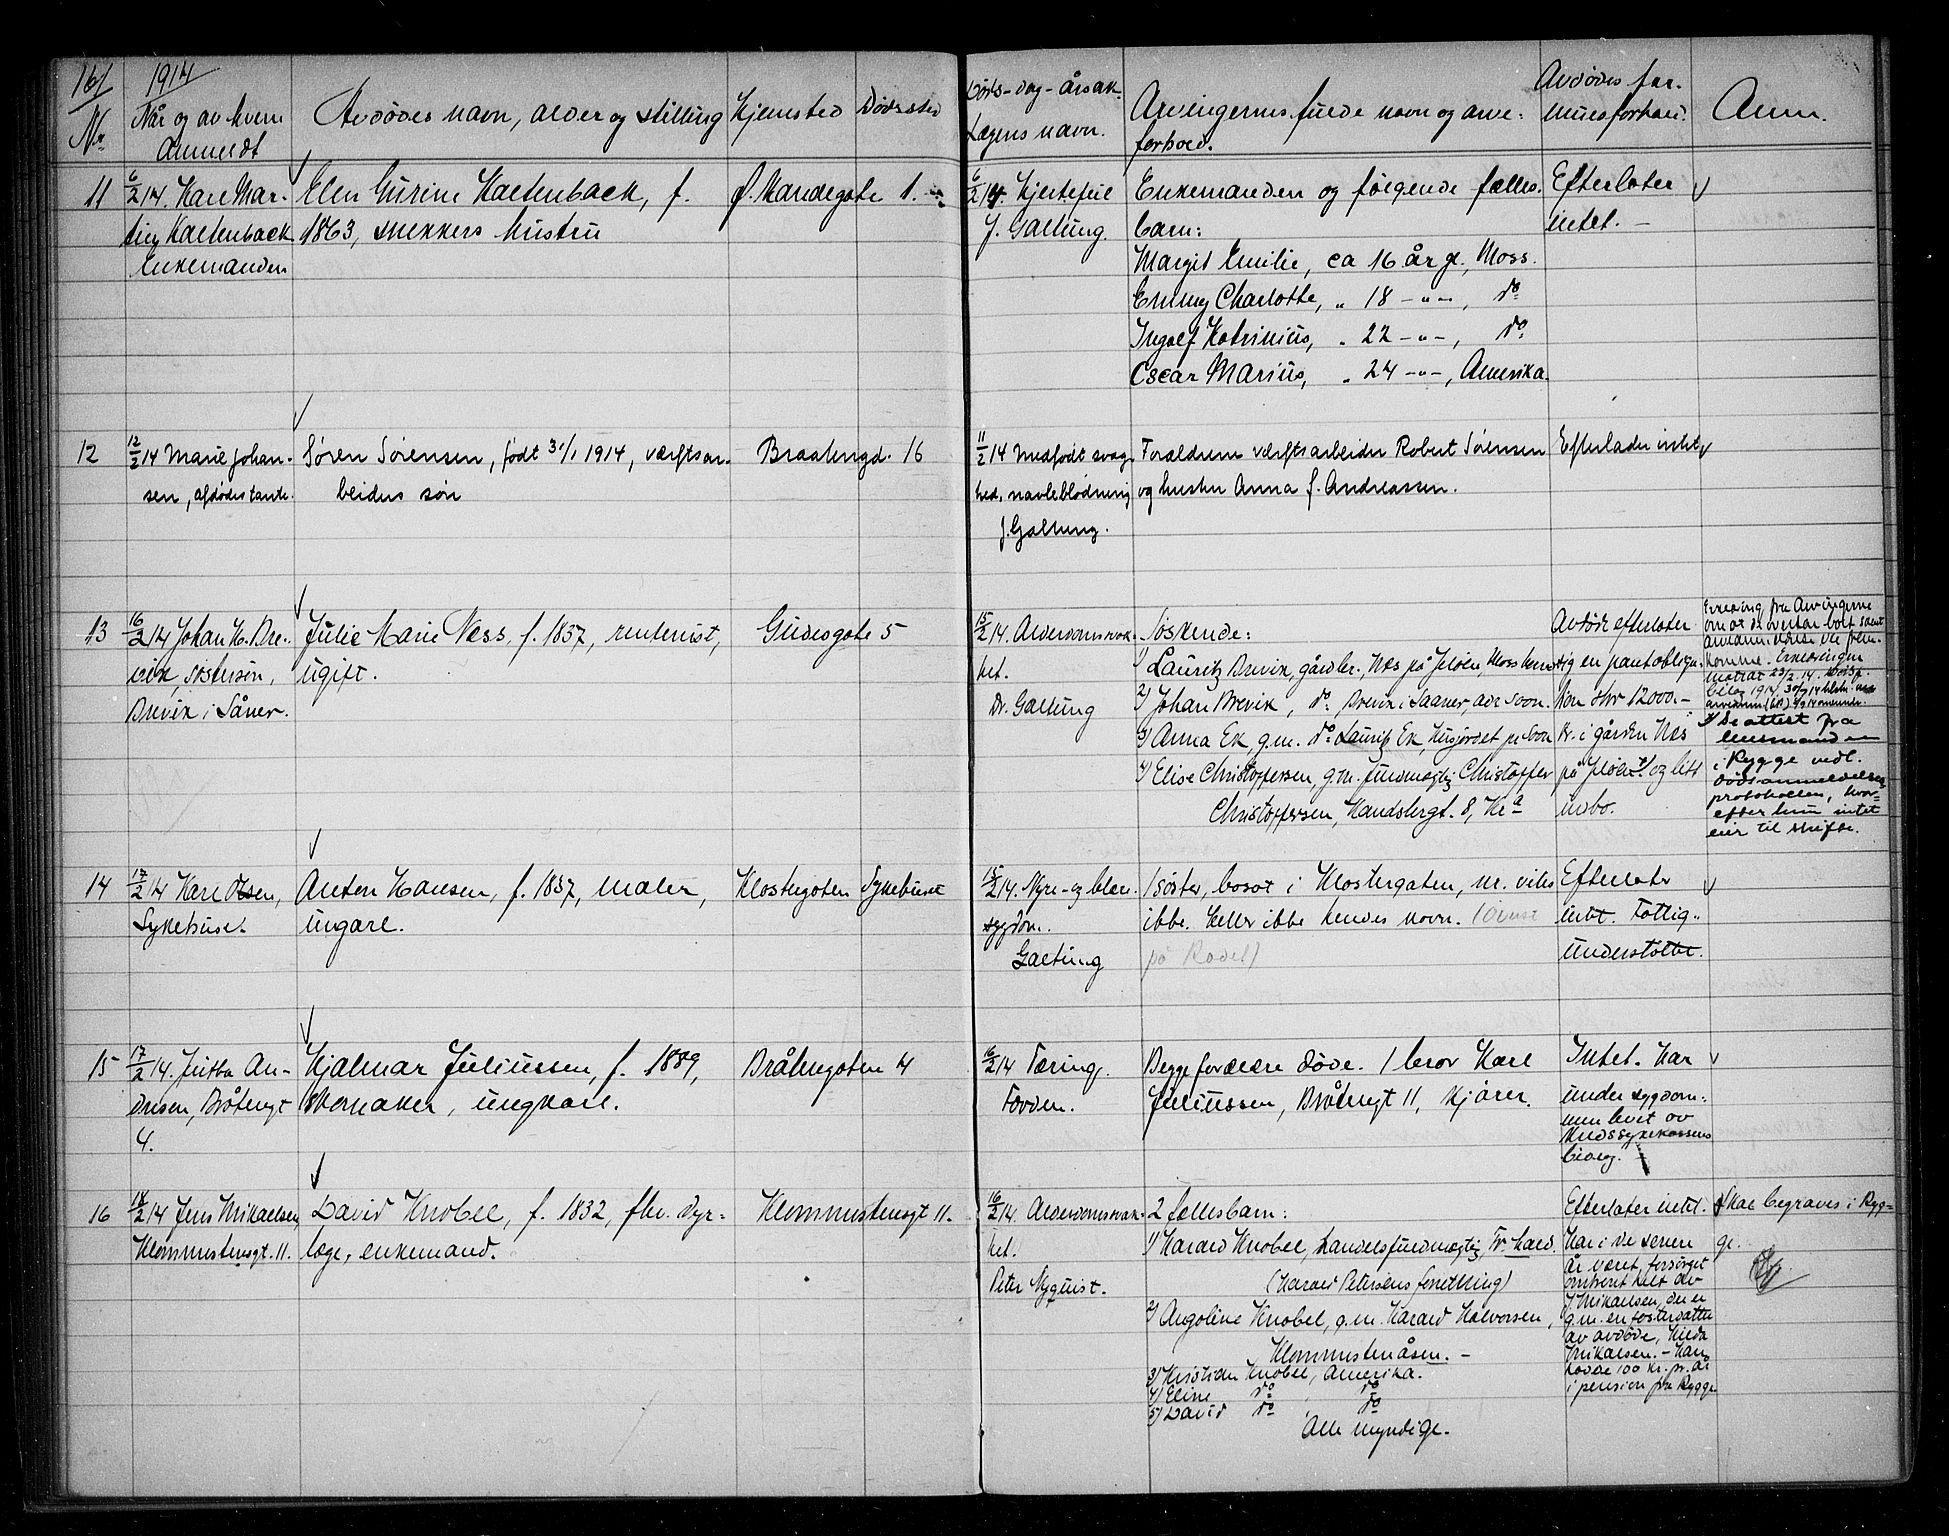 161
1914
Nr.
Når og av hvem
anmeldt
Avdødes navn, alder og stilling
Hjemsted
Dødssted
Døds-dag-årsak.
Lægens navn.
Arvingernes fulde navn og arve-
forhold.
Avdødes for-
muesforhold.
Anm.
11
6/2 14. Karl Mar-
tin Kaltenback
Enkemanden
Elen Gurine Kaltenback, f.
1863, snekkers hustru
f. Mandegate 1.
6/2 14. Hjertefeil
J. Galtung.
Enkemanden og følgende fælles-
barn:
Margit Emilie, ca 16 år gl., Moss.
Emmy Charlotte, " 18 -"-, do
Ingolf Katrinius, " 22 -"-, do
Oscar Marius, " 24 -"-, Amerika.
Efterlater
intet. -
12
12/2 14 Marie Johan-
sen, afdødes tante.
Søren Sørensen, født 31/1 1914, værftsar-
beiders søn
Braatengd. 16
11/2 14 medfødt svag-
hed, navleblødning
J. Galtung.
Forældrene værftsarbeider Robert Sørensen
og hustru Anna f. Andreassen.
Efterlader intet
13
16/2 14 Johan H. Bre-
vik, søstersøn,
Brevik i Såner.
Julie Marie Næss, f. 1837, rentenist,
ugift.
Gudesgate 5
15/2 14. Alderdomssvak-
het.
Dr. Galtung
Søskende:
1) Lauritz Brevik, gårdbr. Næs på Jeløen, Moss
2) Johan Brevik, do Brevik i Saaner, adr Soon.
3) Anna Ek, g.m. do Lauritz Ek, Husjordet pr Soon
4) Elise Christoffersen, g.m. fuldmægtig Christoffer
Christoffersen, Handsbergt. 8, Kra
Avdøde efterlater
sig en pantobliga-
tion stor 12000.-
kr. i gården Næs
på Jeløen og litt
indbo.
Erklæring fra Arvingerne
om at de overtar boet samt
komme. Erklæringen
mottat 23/2 14.
Se attest fra
lensmanden
i Rygge vedl.
dødsanmeldelses
protokollen, hvor-
efter hun intet
eier til skifte.
14
17/2 14 Karl Olsen,
Sykehuset.
Anton Hansen, f. 1837, maler,
ungkarl.
Klostergaten
Sykehuset
15/2 14. Nyre- og blære-
sygdom.
Galtung
1 søster, bosat i Klostergaten, nr. vites
ikke. Heller ikke hendes navn.
på Rødel)
Efterlater
intet. Fattig-
understøttet.
15
17/2 14. Jutta An-
dresen, Bråtengt
4.
Hjalmar Juliussen, f. 1889,
skomaker, ungkarl.
Bråtengaten 4
16/2 14 Tæring.
Forden.
Begge forældre døde. 1 bror Karl
Juliussen, Bråtengt 11, kjører.
Intet. Har
under sygdom-
men levet av
Kredssykekassens
bidrag.
16
18/2 14 Jens Mikaelsen
Klommestensgt. 11.
David Knobel, f. 1832, fhv. dyr-
læge, enkemand.
Klommestensgt 11.
16/2 14. Alderdomssvak-
het.
Peter Nyquist.
2 fællesbarn:
1) Harald Knobel, handelsfuldmægtig, Fr.hald.
(Harald Petersens forretning)
2) Angoline Knobel, g.m. Harald Halvorsen,
Klommestenåsen. -
3) Kristian Knobel, Amerika.
4) Elise do do
5) David do do
Alle myndige.
Efterlater intet.
Har i de senere
år været forsørget
omtrent helt av
J. Mikaelsen, der er
g.m. en fosterdatter
av avdøde, Hilda
Mikalsen. - Han
hadde 100 kr. pr. år
i pension fra Rygge
Skal begraves i Ryg-
ge.